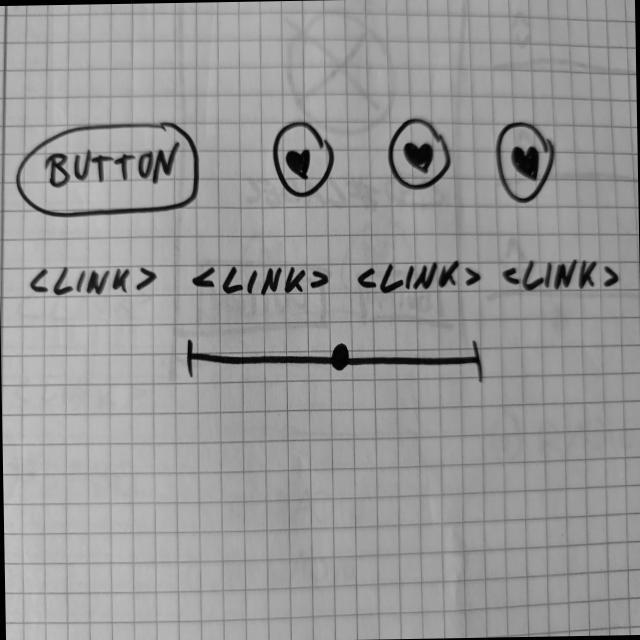 BUTTON
<LINK> <LINK> <LINK> <LINK>